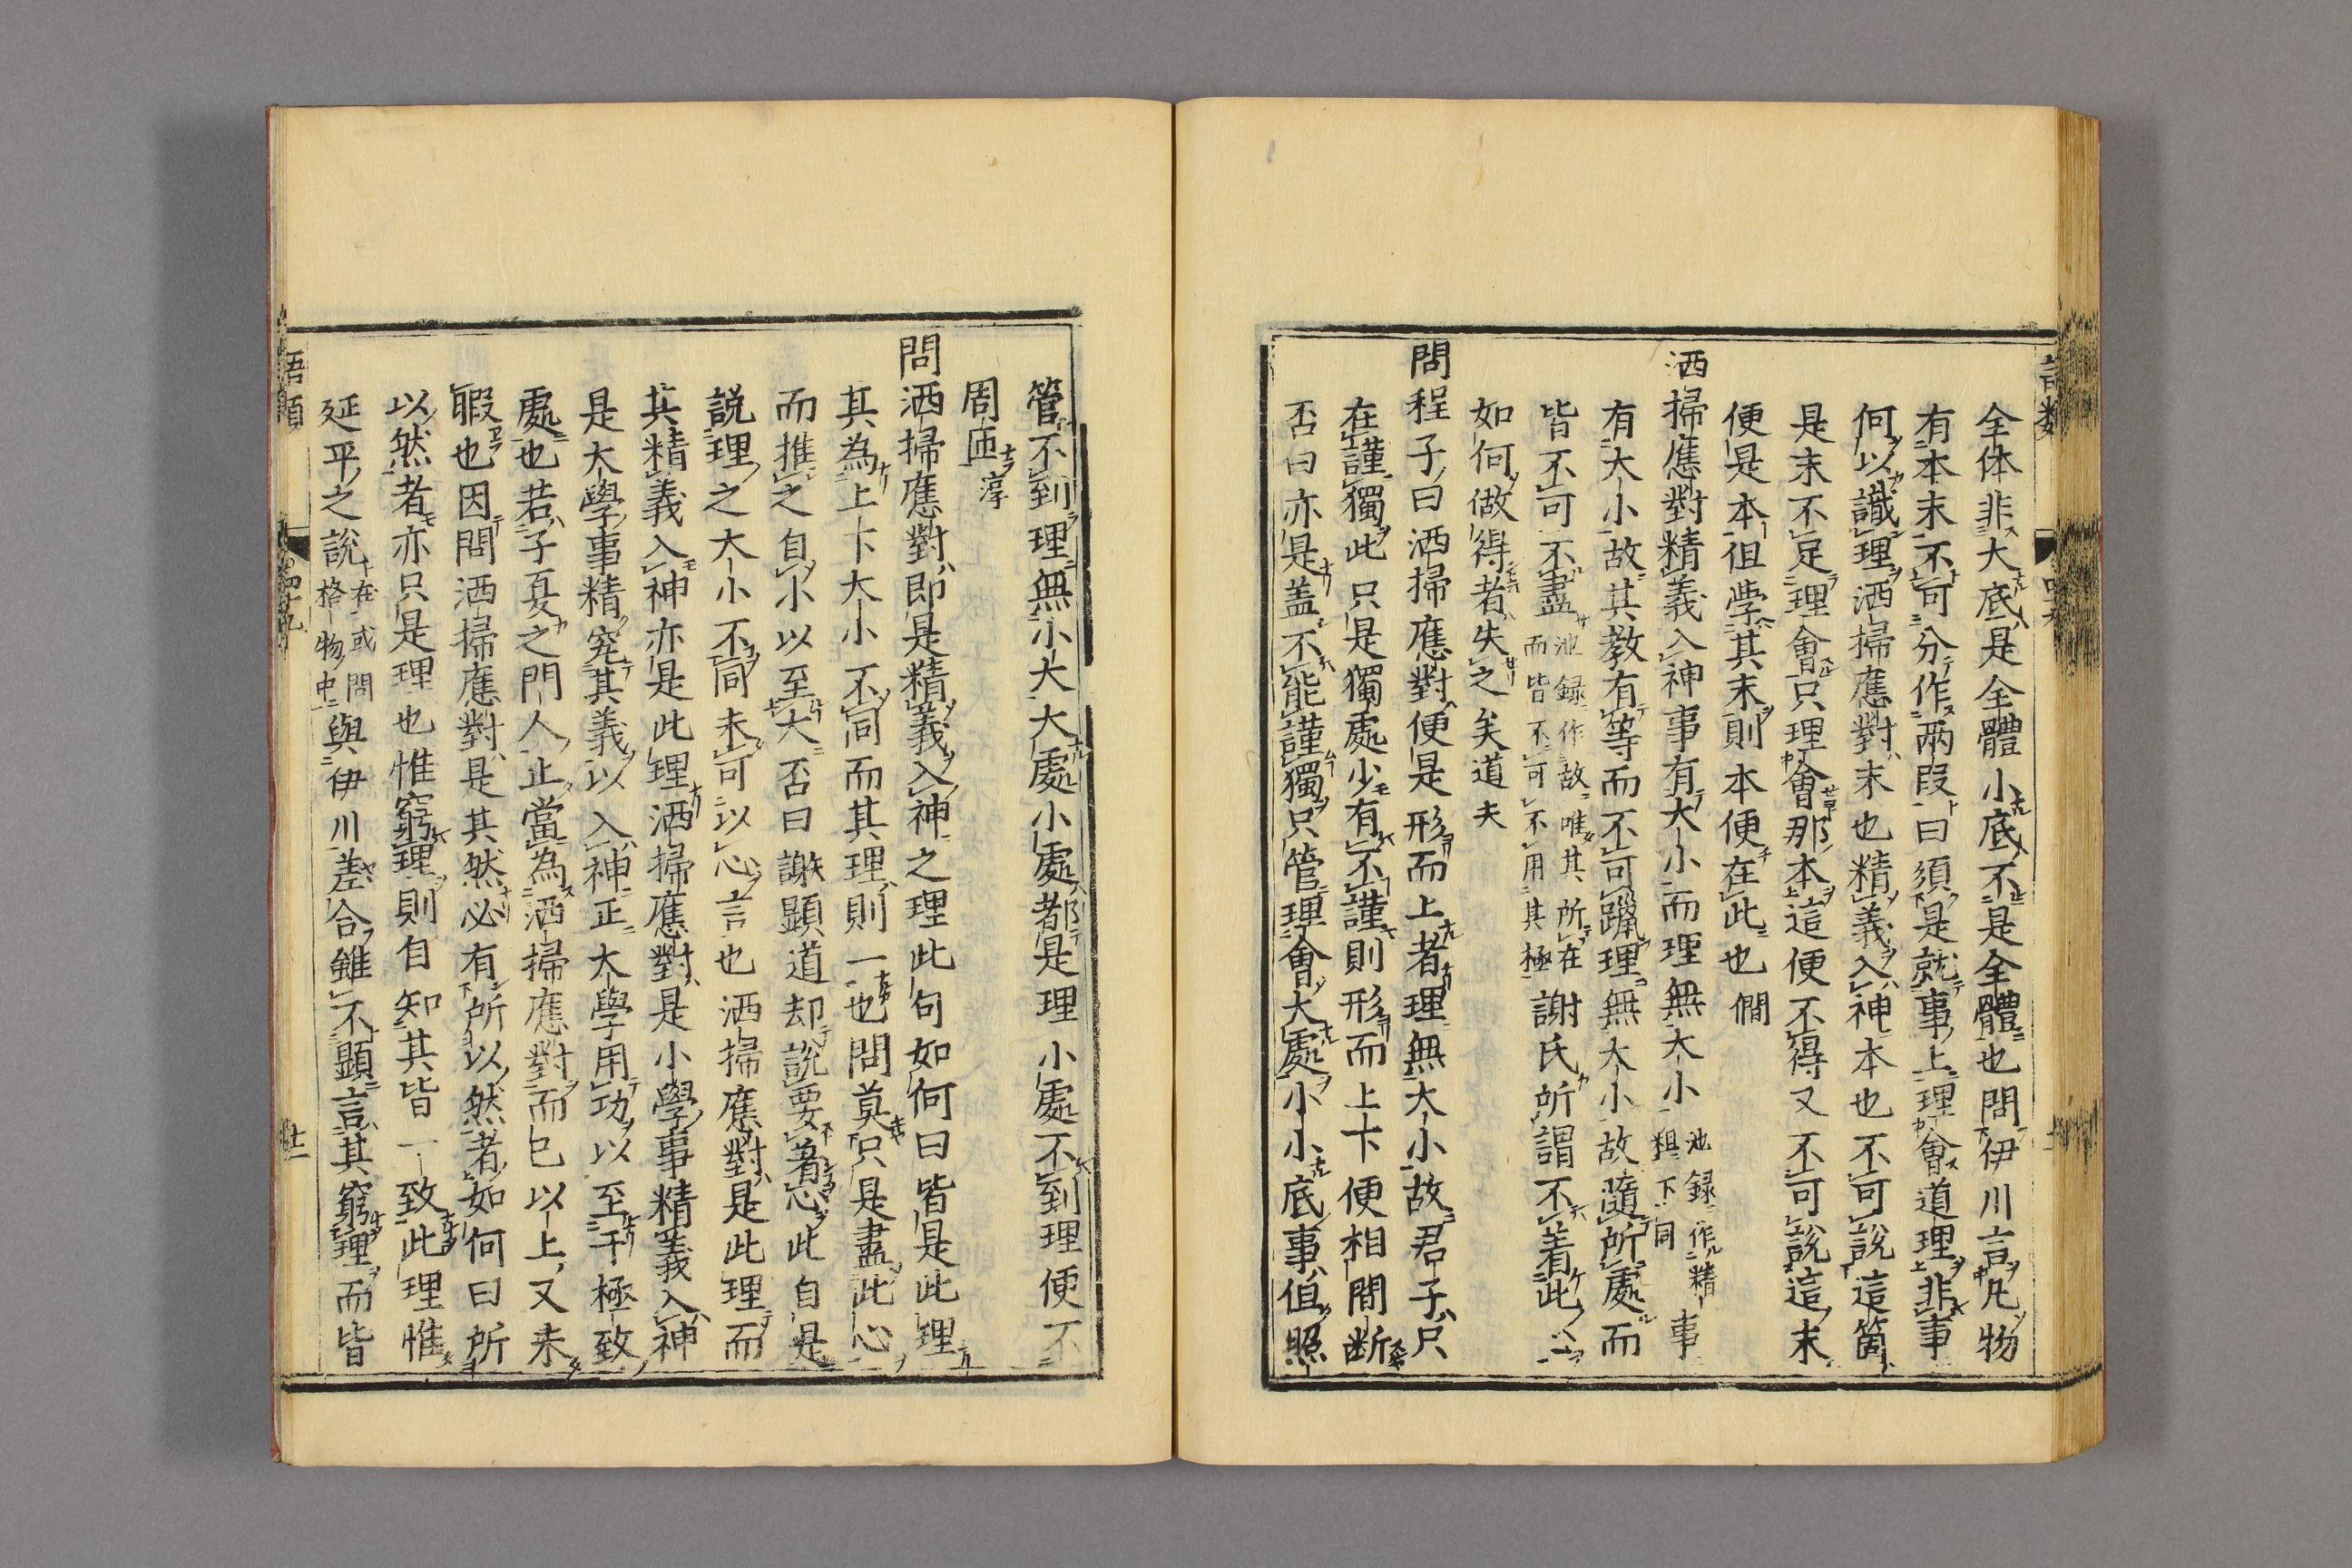 全体非大底是全體小底不是全體也問伊川言凡物
有本末不可分作兩段曰須是就事上理會道理非事
何以識理洒掃應對末也精義入神本也不可說這箇
是末不足理會只理會那本這便不得又不可說這末
便是本但學其末則本便在此也僩
洒掃應對精義入神事有大小而理無大小池録作精粗下同事
有大小故其教有等而不可躐理無大小故隨所處而
皆不可不盡池録作故唯其所在而皆不可不用其極謝氏所謂不着此心
如何做得者失之矣道夫
問程子曰洒掃應對便是形而上者理無大小故君子只
在謹獨此只是獨處少有不謹則形而上下便相間斷
否曰亦是盖不能謹獨只管理會大處小小底事便照
管不到理無小大大處小處都是理小處不到理便不
周匝淳
問洒掃應對即是精義入神之理此句如何曰皆是此理
其為上下大小不同而其理則一也問莫只是盡此心
而推之自小以至大否曰謝顯道却說要著心此自是
説理之大小不同未可以心言也洒掃應對是此理而
其精義入神亦是此理洒掃應對是小學事精義入神
是大學事精究其義以入神正大學用功以至于極致
處也若子夏之門人止當為洒掃應對而已以上又未
暇也因問洒掃應對是其然必有所以然者如何曰所
以然者亦只是理也惟窮理則自知其皆一致此理惟
延平之說在或問格物中與伊川差合雖不顯言其窮理而皆
語類
四十九
十二